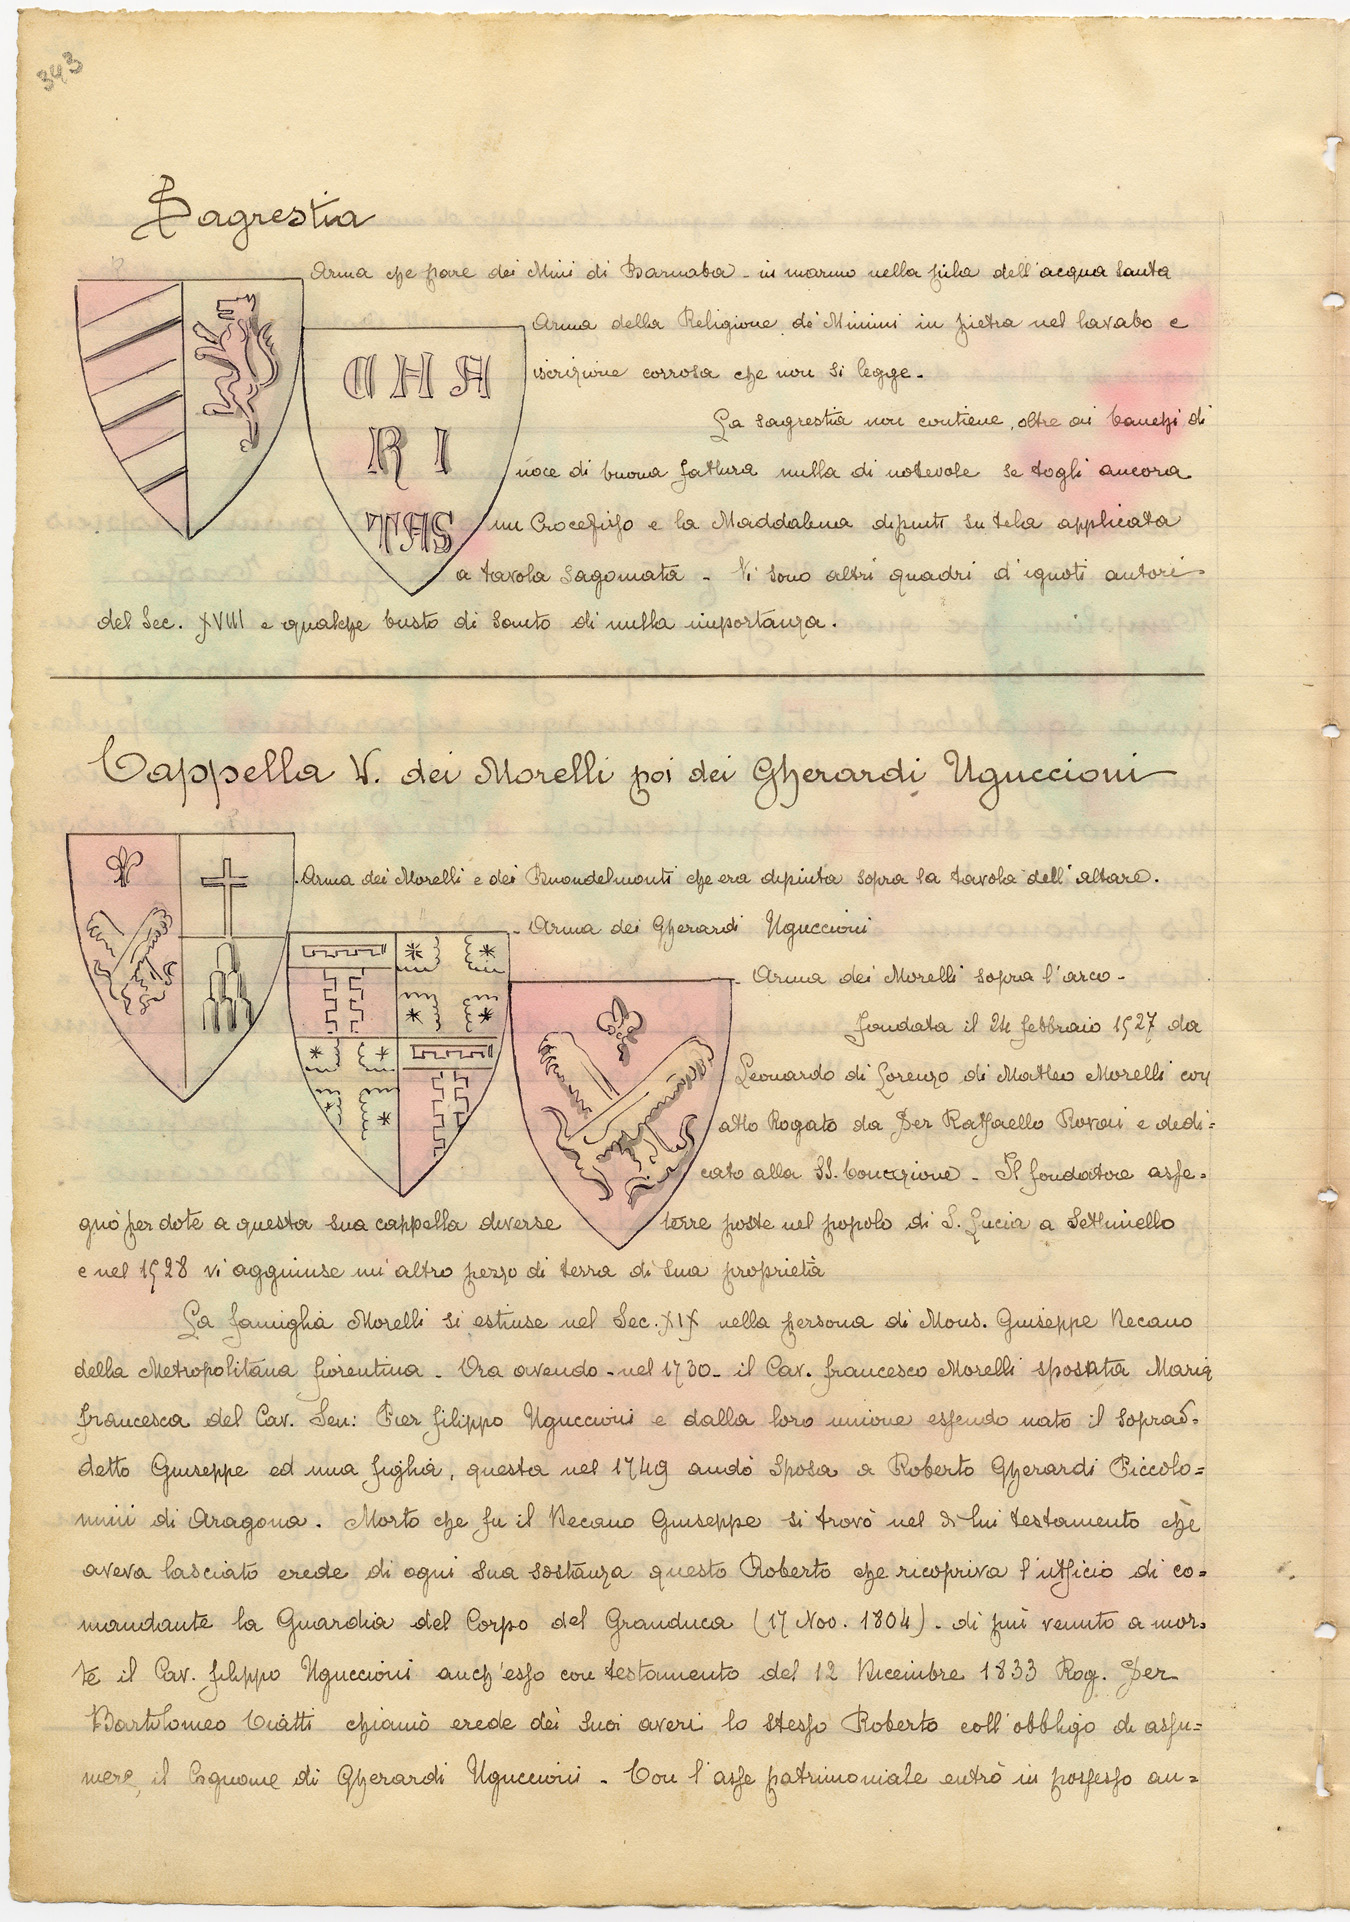 343
Sagrestia
Arma che pare dei Mini di Barnaba - in marmo nella pila dell'acqua santa
Arma della Religione de' Minimi in pietra nel lavabo e
iscrizione corrosa che non si legge.
CHA
RI
TAS
La sagrestia non contiene, oltre ai banchi di
noce di buona fattura nulla di notevole se togli ancora
un Crocefisso e la Maddalena dipinti su tela applicata
a tavola sagomata - Vi sono altri quadri d'ignoti autori
del Sec. XVIII e qualche busto di Santo di nulla importanza.
Cappella V. dei Morelli poi dei Gherardi Uguccioni
Arma dei Morelli e dei Buondelmonti che era dipinta sopra la tavola dell'altare.
Arma dei Gherardi Uguccioni
Arma dei Morelli sopra l'arco -
fondata il 24 febbraio 1527 da
Leonardo di Lorenzo di Matteo Morelli con
atto Rogato da Ser Raffaello Rovai e dedi=
cato alla SS. Concezione - Il fondatore asse=
gnò per dote a questa sua cappella diverse terre poste nel popolo di S. Lucia a Settiniello
e nel 1528 vi aggiunse un'altro pezzo di terra di sua proprietà
La famiglia Morelli si estinse nel Sec. XIX nella persona di Mons. Giuseppe Decano
della Metropolitana fiorentina - Ora avendo - nel 1730 - il Cav. francesco Morelli sposata Maria
francesca del Cav. Sen: Pier filippo Uguccioni e dalla loro unione essendo nato il soprad=
detto Giuseppe ed una figlia, questa nel 1749 andò Sposa a Roberto Gherardi Piccolo=
mini di Aragona. Morto che fu il Decano Giuseppe si trovò nel di lui testamento che
aveva lasciato erede di ogni sua sostanza questo Roberto che ricopriva l'ufficio di co=
mandante la Guardia del Corpo del Granduca (17 Nov. 1804) - di più venuto a mor=
te il Cav. filippo Uguccioni anch'esso con testamento del 12 Dicembre 1833 Rog. Ser
Bartolomeo Ciatti chiamò erede dei suoi averi lo stesso Roberto coll'obbligo di assu=
mere il Cognome di Gherardi Uguccioni - Con l'asse patrimoniale entrò in possesso an=